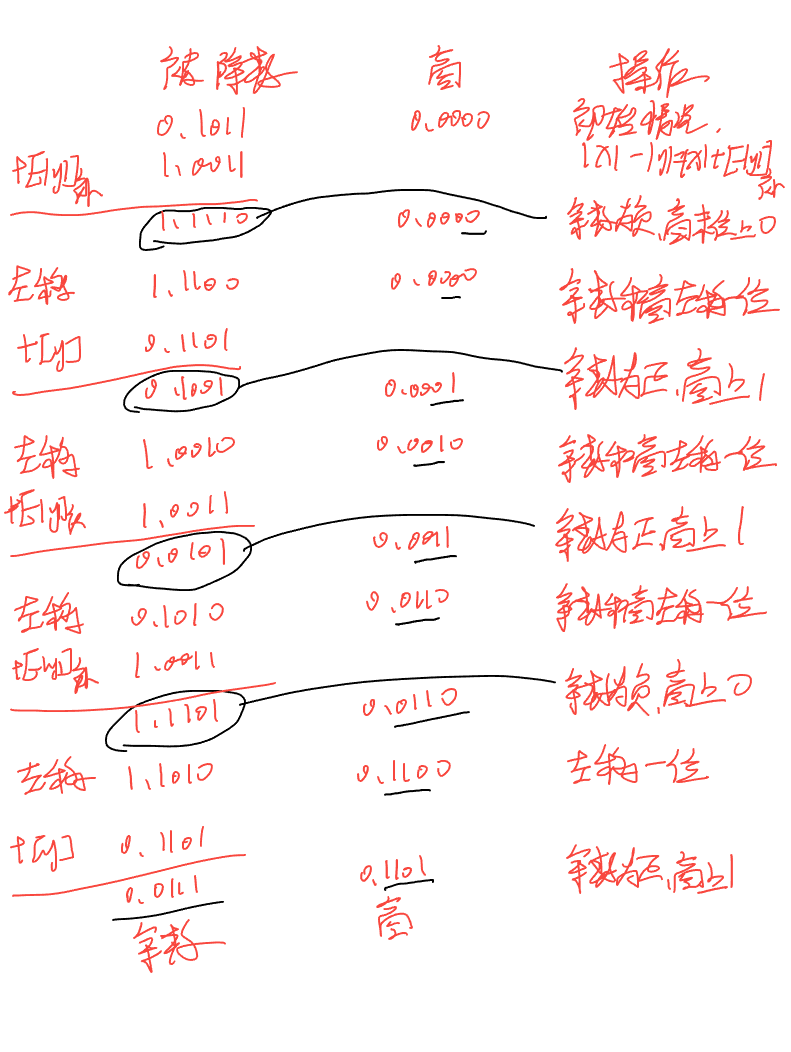 被除数 商 操作
0.1011 0.0000 初始情况,
+[-|y|]补 1.0011 |x|-|y|=|x|+[-|y|]补
1.1110 0.0000 余数为负,商末位上0
左移 1.1100 0.0000 余数和商左移一位
+[y] 0.1101
0.1001 0.0001 余数为正,商上1
左移 1.0010 0.0010 余数和商左移一位
+[-|y|]补 1.0011
0.0101 0.0011 余数为正,商上1
左移 0.1010 0.0110 余数和商左移一位
+[-|y|]补 1.0011
1.1101 0.0110 余数为负,商上0
左移 1.1010 0.1100 左移一位
+[y] 0.1101
0.0111 0.1101 余数为正,商上1
余数 商